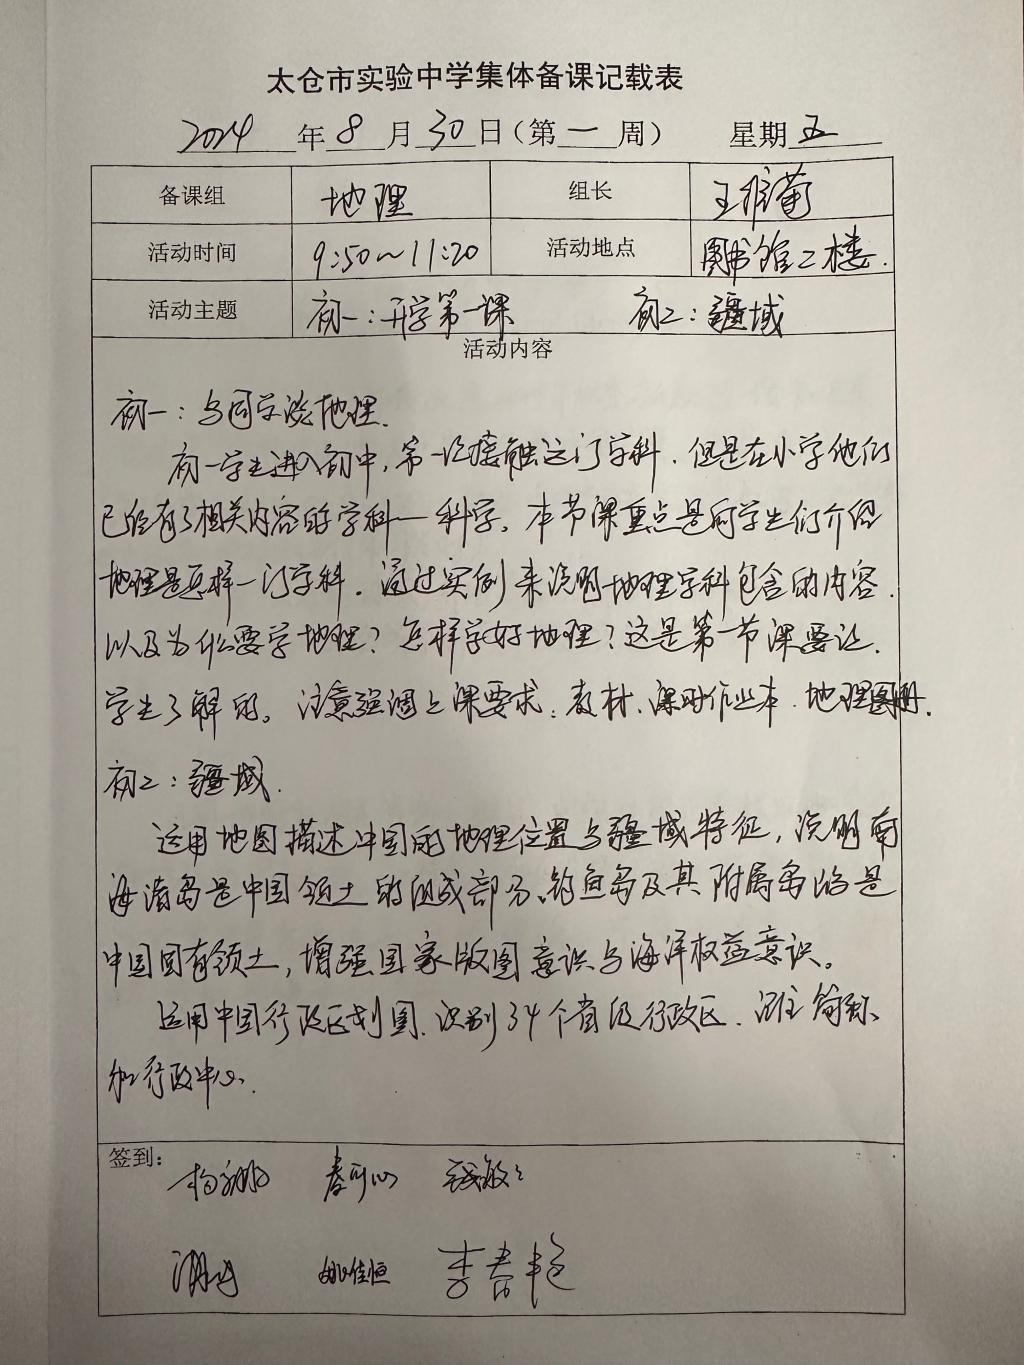 太仓市实验中学集体备课记载表
2024年8月30日（第一周） 星期五
备课组 地理 组长 王
活动时间 9:50～11:20 活动地点 图书馆二楼.
活动主题 初一：开学第一课 初二：疆域
活动内容
初一：与同学谈地理.
初一学生进入初中，第一次接触这门学科.但是在小学他们
已经有了相关内容的学科—科学。本节课重点是向学生们介绍
地理是怎样一门学科.通过实例来说明地理学科包含的内容.
以及为什么要学地理？怎样学好地理？这是第一节课要让.
学生了解的。注意强调上课要求：教材、课时作业本.地理图册.
初二：疆域.
运用地图描述中国的地理位置与疆域特征，说明南
海诸岛是中国领土的组成部分、钓鱼岛及其附属岛屿是
中国固有领土，增强国家版图意识与海洋权益意识。
运用中国行政区划图.识别34个省级行政区.简称、
和行政中心.
签到：
姚佳恒 李春艳